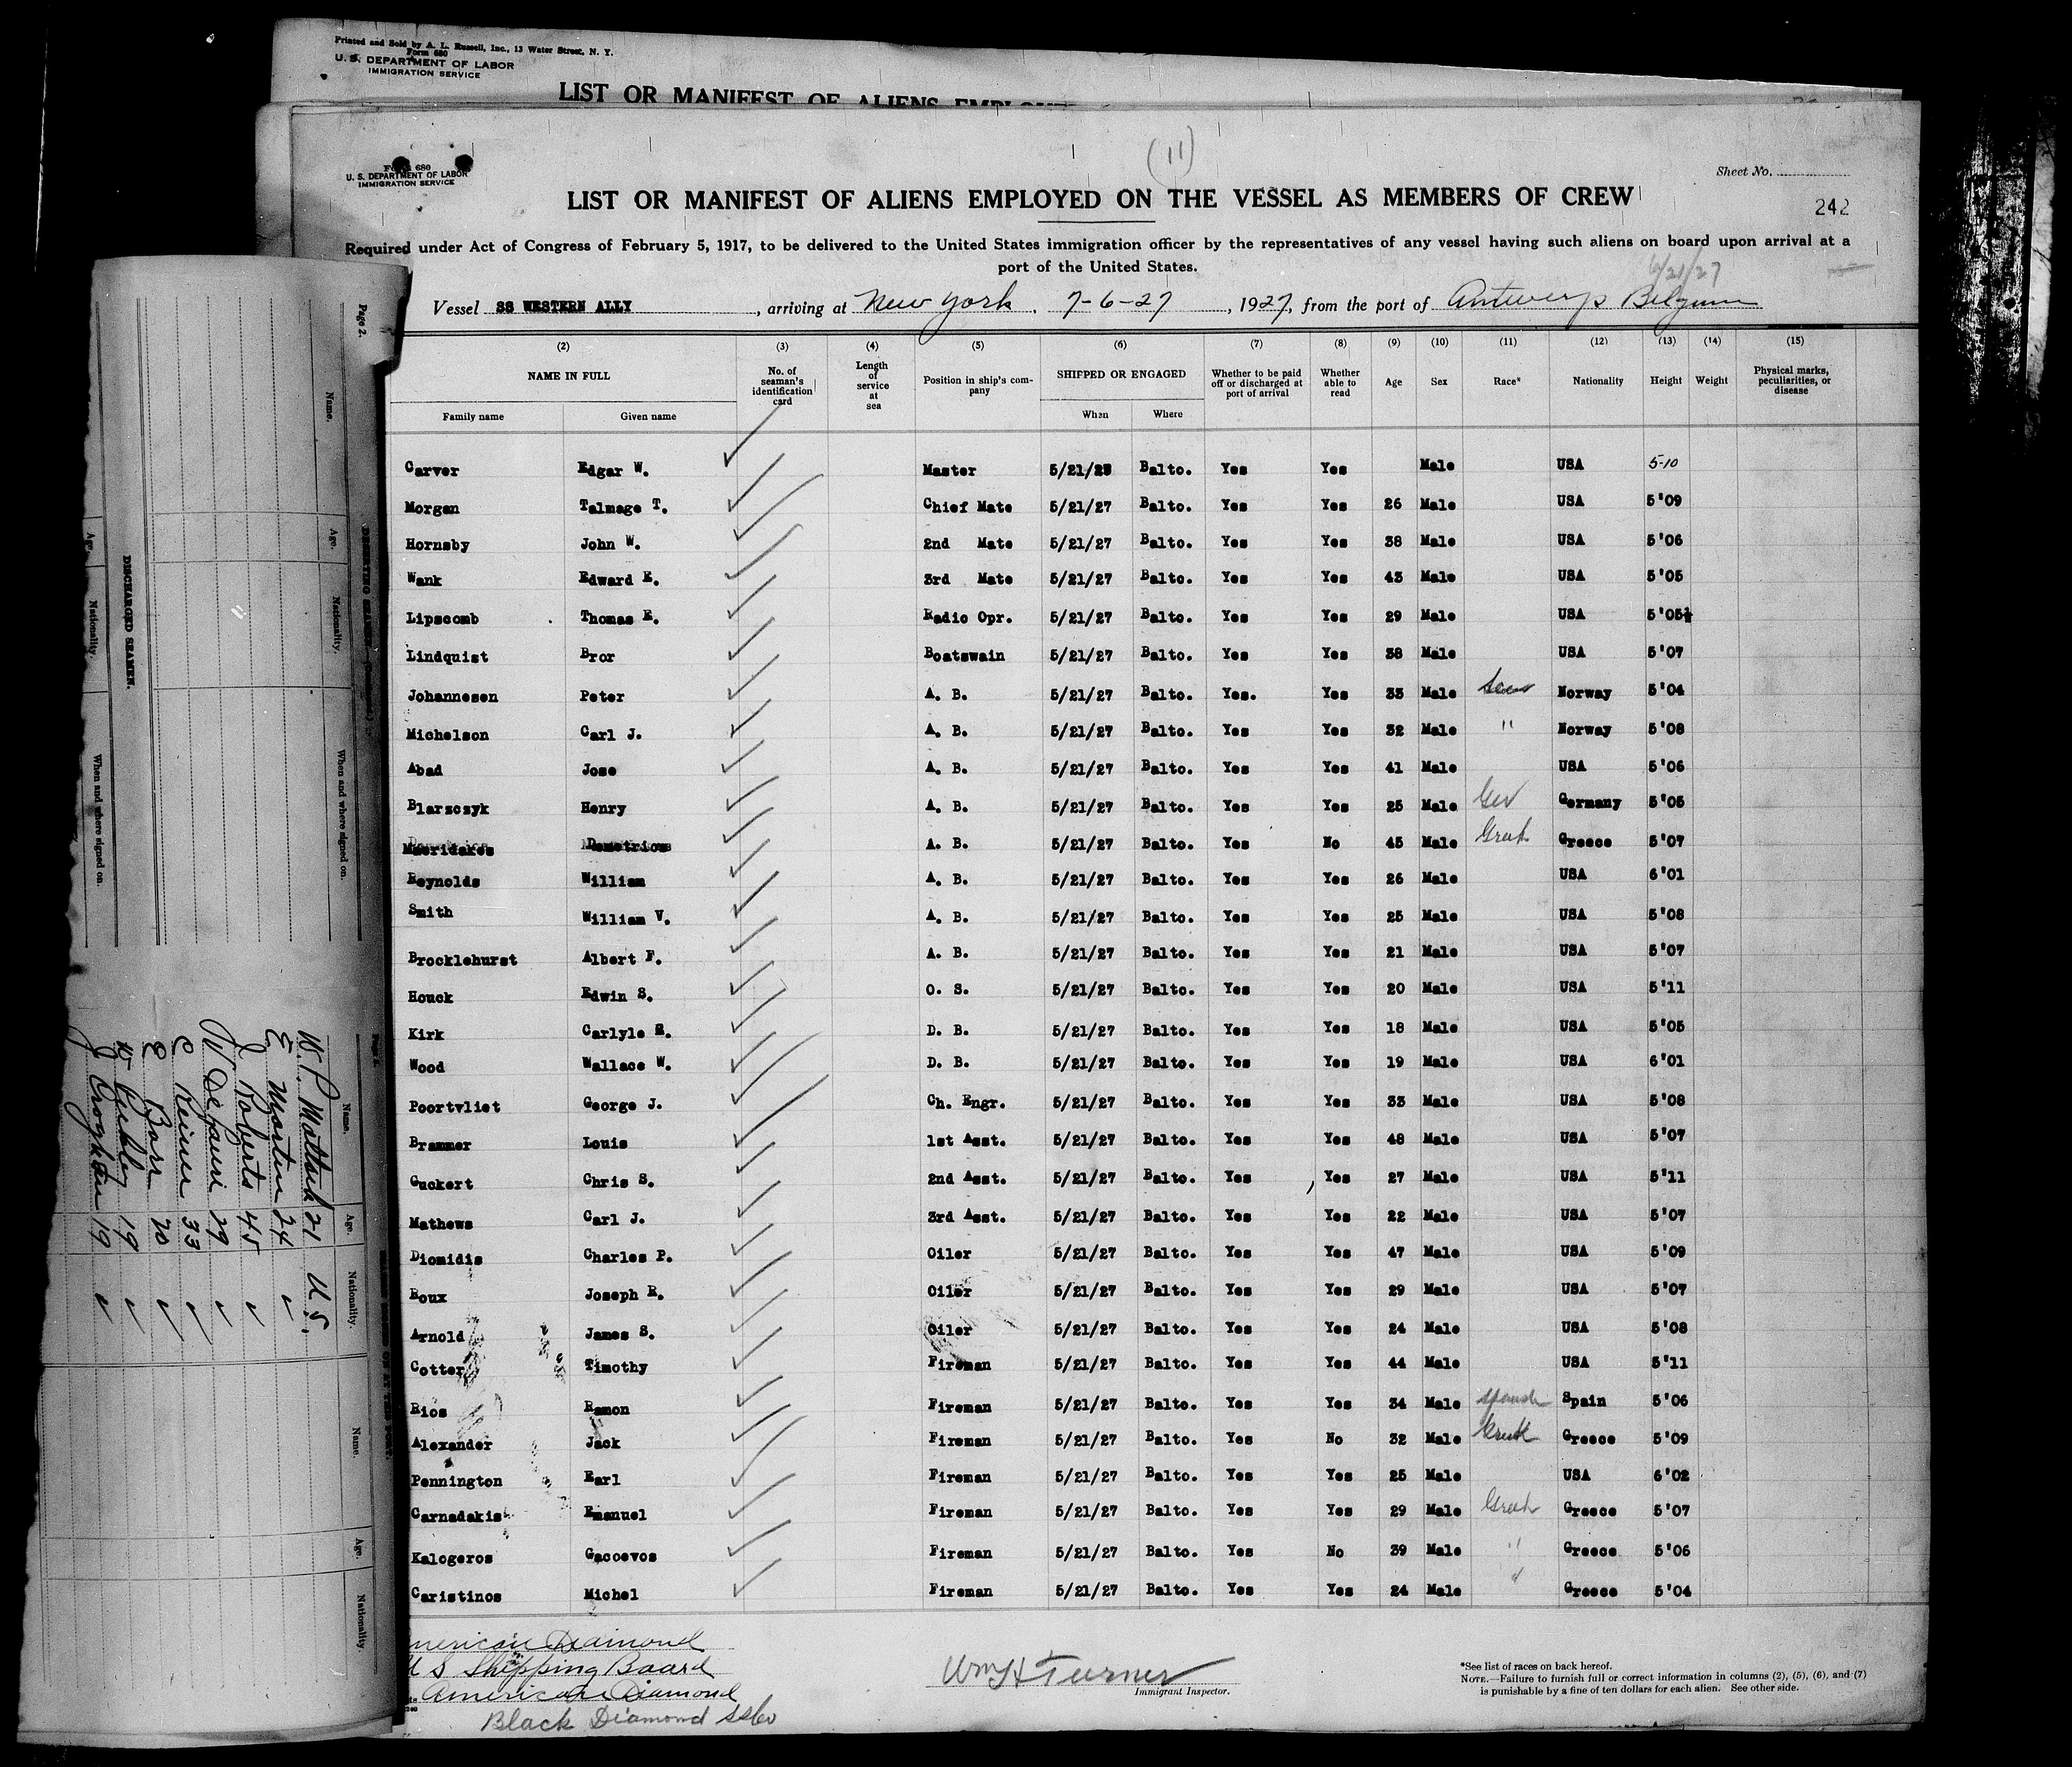 Printed and Sold by A. L. Russell, Inc., 13 Water Street, N. Y.
Form 680
U. S. DEPARTMENT OF LABOR
IMMIGRATION SERVICE
LIST OR MANIFEST OF ALIENS
(11)
Form 680
U. S. DEPARTMENT OF LABOR
IMMIGRATION SERVICE
Sheet No.
LIST OR MANIFEST OF ALIENS EMPLOYED ON THE VESSEL AS MEMBERS OF CREW
242
Required under Act of Congress of February 5, 1917, to be delivered to the United States immigration officer by the representatives of any vessel having such aliens on board upon arrival at a
port of the United States.
6/21/27
Vessel SS WESTERN ALLY, arriving at New York. 7-6-27, 1927, from the port of Antwerp Belgium
(2) (3) (4) (5) (6) (7) (8) (9) (10) (11) (12) (13) (14) (15)
NAME IN FULL No. of seaman's identification card Length of service at sea Position in ship's company SHIPPED OR ENGAGED Whether to be paid off or discharged at port of arrival Whether able to read Age Sex Race* Nationality Height Weight Physical marks, peculiarities, or disease
Family name Given name When Where
Carver Edgar W. Master 5/21/25 Balto. Yes Yes Male USA 5-10
Morgan Talmage T. Chief Mate 5/21/27 Balto. Yes Yes 26 Male USA 5'09
Hornsby John W. 2nd Mate 5/21/27 Balto. Yes Yes 38 Male USA 5'06
Wank Edward E. 3rd Mate 5/21/27 Balto. Yes Yes 43 Male USA 5'05
Lipscomb Thomas E. Radio Opr. 5/21/27 Balto. Yes Yes 29 Male USA 5'05½
Lindquist Bror Boatswain 5/21/27 Balto. Yes Yes 38 Male USA 5'07
Johannesen Peter A. B. 5/21/27 Balto. Yes. Yes 33 Male Norway 5'04
Michelson Carl J. A. B. 5/21/27 Balto. Yes Yes 32 Male " Norway 5'08
Abad Jose A. B. 5/21/27 Balto. Yes Yes 41 Male USA 5'06
Blarzczyk Henry A. B. 5/21/27 Balto. Yes Yes 25 Male Ger Germany 5'05
Demetrious A. B. 5/21/27 Balto. Yes No 45 Male Greek Greece 5'07
Reynolds William A. B. 5/21/27 Balto. Yes Yes 26 Male USA 6'01
Smith William V. A. B. 5/21/27 Balto. Yes Yes 25 Male USA 5'08
Brocklehurst Albert F. A. B. 5/21/27 Balto. Yes Yes 21 Male USA 5'07
Houck Edwin S. O. S. 5/21/27 Balto. Yes Yes 20 Male USA 5'11
Kirk Carlyle R. D. B. 5/21/27 Balto. Yes Yes 18 Male USA 5'05
Wood Wallace W. D. B. 5/21/27 Balto. Yes Yes 19 Male USA 6'01
Poortvliet George J. Ch. Engr. 5/21/27 Balto. Yes Yes 33 Male USA 5'08
Brammer Louis 1st Asst. 5/21/27 Balto. Yes Yes 48 Male USA 5'07
Guckert Chris S. 2nd Asst. 5/21/27 Balto. Yes Yes 27 Male USA 5'11
Mathews Carl J. 3rd Asst. 5/21/27 Balto. Yes Yes 22 Male USA 5'07
Diomidis Charles P. Oiler 5/21/27 Balto. Yes Yes 47 Male USA 5'09
Roux Joseph R. Oiler 5/21/27 Balto. Yes Yes 29 Male USA 5'07
Arnold James S. Oiler 5/21/27 Balto. Yes Yes 24 Male USA 5'08
Cotter Timothy Fireman 5/21/27 Balto. Yes Yes 44 Male USA 5'11
Rios Ramon Fireman 5/21/27 Balto. Yes Yes 34 Male Spanish Spain 5'06
Alexander Jack Fireman 5/21/27 Balto. Yes No 32 Male Greek Greece 5'09
Pennington Earl Fireman 5/21/27 Balto. Yes Yes 25 Male USA 6'02
Carnadakis Emanuel Fireman 5/21/27 Balto. Yes Yes 29 Male Greek Greece 5'07
Kalogeros Gacoevos Fireman 5/21/27 Balto. Yes No 39 Male " Greece 5'06
Caristinos Michel Fireman 5/21/27 Balto. Yes Yes 24 Male " Greece 5'04
merican Diamond
U S Shipping Board
American Diamond
Black Diamond SS Co
Wm H Turner
Immigrant Inspector.
*See list of races on back hereof.
NOTE.—Failure to furnish full or correct information in columns (2), (5), (6), and (7)
is punishable by a fine of ten dollars for each alien. See other side.
Page 2.
Name. Age. Nationality. When and where signed on.
DISCHARGED SEAMEN.
Age. Nationality. When and where signed on.
Name. Age. Nationality. Name. Age. Nationality.
W. P. 21 U.S.
E Morton 24
J. Roberts 45
W 29
C Reiner 33
E Barr 20
19
J Croghan 19